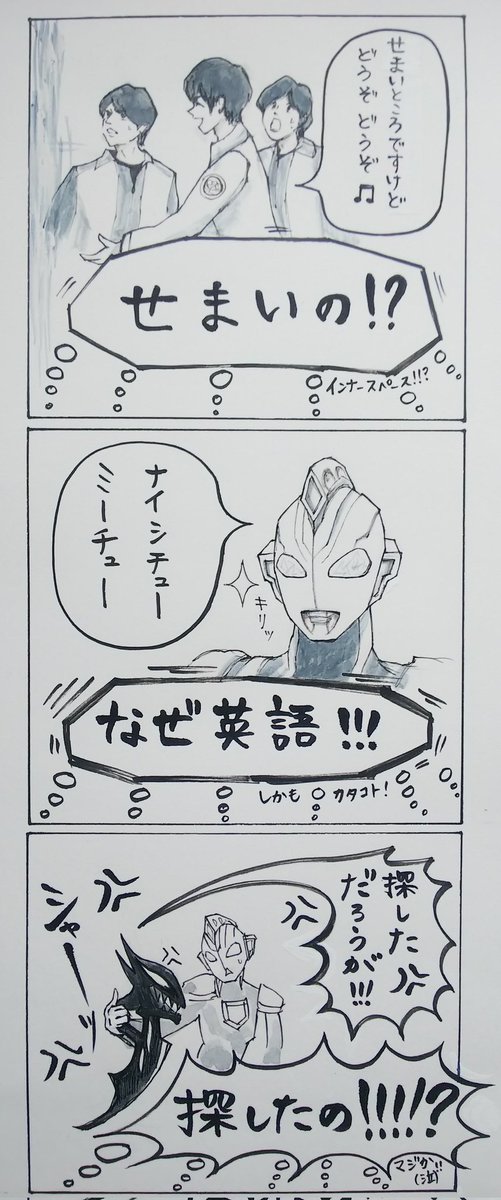 せまいところですけど
どうぞ どうぞ♫
せまいの!?
インナースペース!!?
ナイシチュー
ミーチュー
キリッ
なぜ英語!!!
しかも カタコト!
探した
だろうが!!!
シャーーッ
探したの!!!!?
マジか!!
(泣)